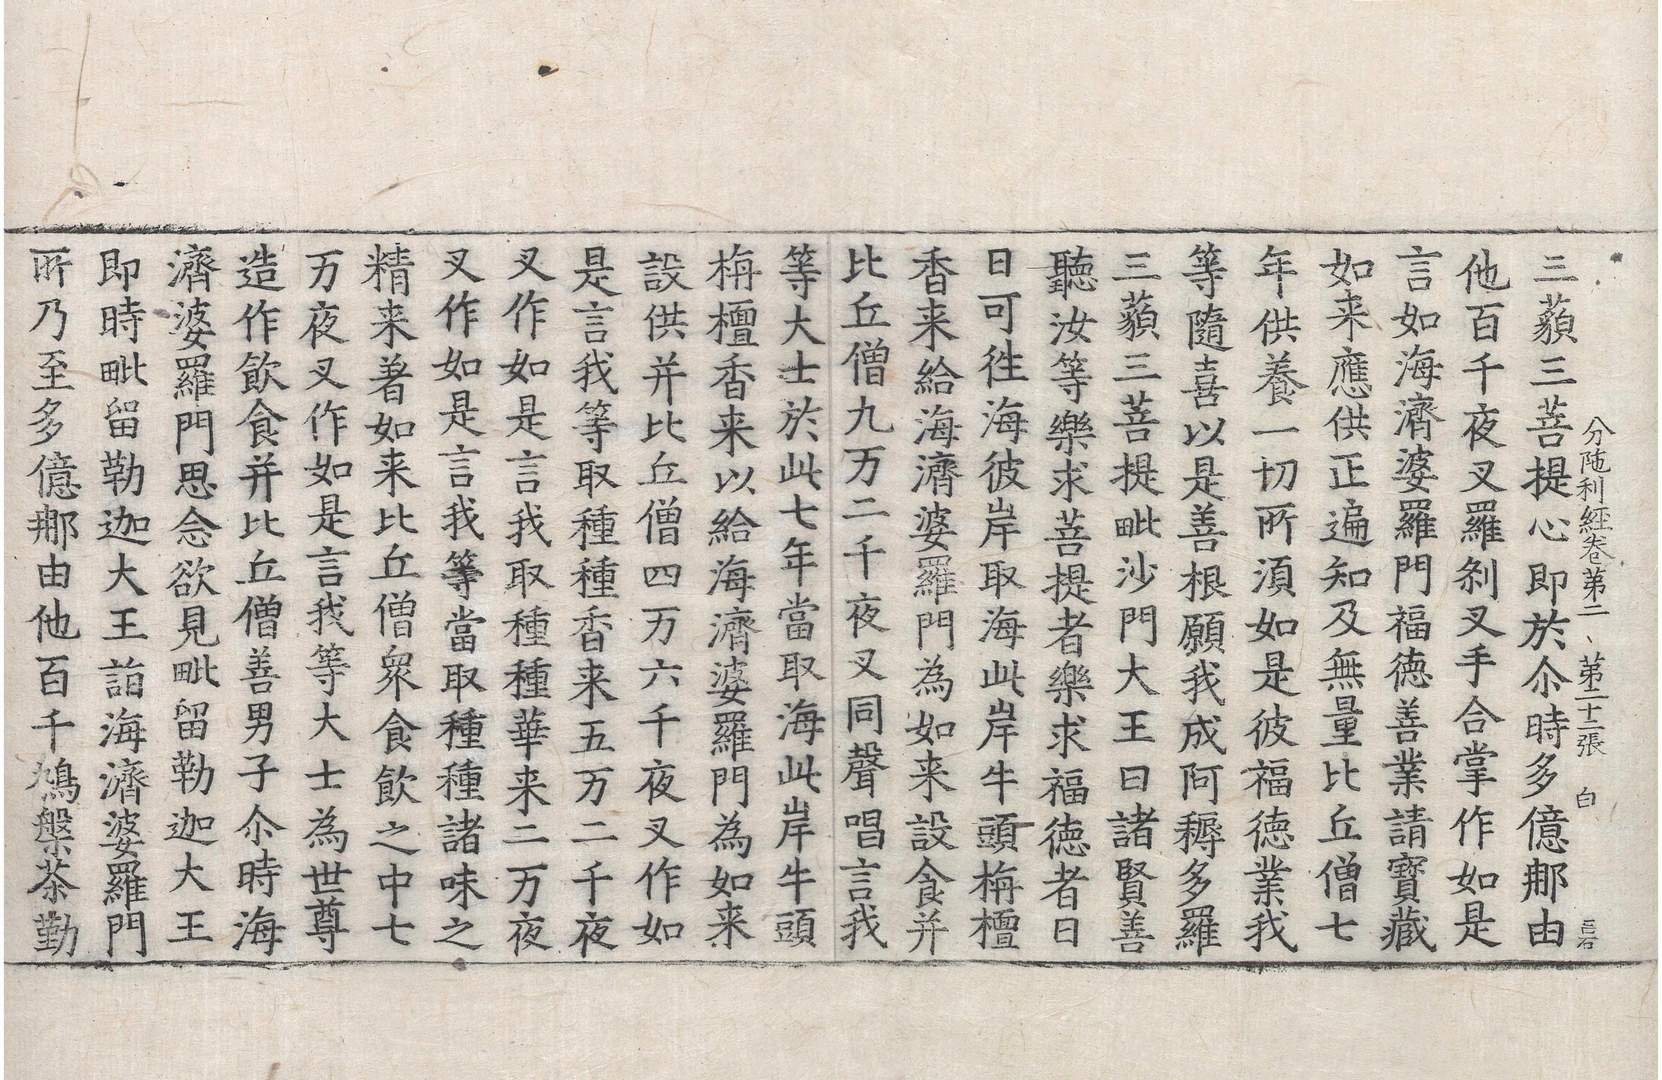 分陁利經卷第二 第二十二張 白
三藐三菩提心即於尒時多億那由
他百千夜叉羅剎叉手合掌作如是
言如海濟婆羅門福德善業請寶藏
如来應供正遍知及無量比丘僧七
年供養一切所湏如是彼福德業我
等隨喜以是善根願我成阿耨多羅
三藐三菩提毗沙門大王曰諸賢善
聽汝等樂求菩提者樂求福德者日
日可往海彼岸取海此岸牛頭栴檀
香来給海濟婆羅門為如来設食并
比丘僧九万二千夜叉同聲唱言我
等大士於此七年當取海此岸牛頭
栴檀香来以給海濟婆羅門為如来
設供并比丘僧四万六千夜叉作如
是言我等取種種香来五万二千夜
叉作如是言我取種種華来二万夜
叉作如是言我等當取種種諸味之
精来著如来比丘僧衆食飲之中七
万夜叉作如是言我等大士為世尊
造作飲食并比丘僧善男子尒時海
濟婆羅門思念欲見毗留勒迦大王
即時毗留勒迦大王詣海濟婆羅門
所乃至多億那由他百千鳩槃茶勤